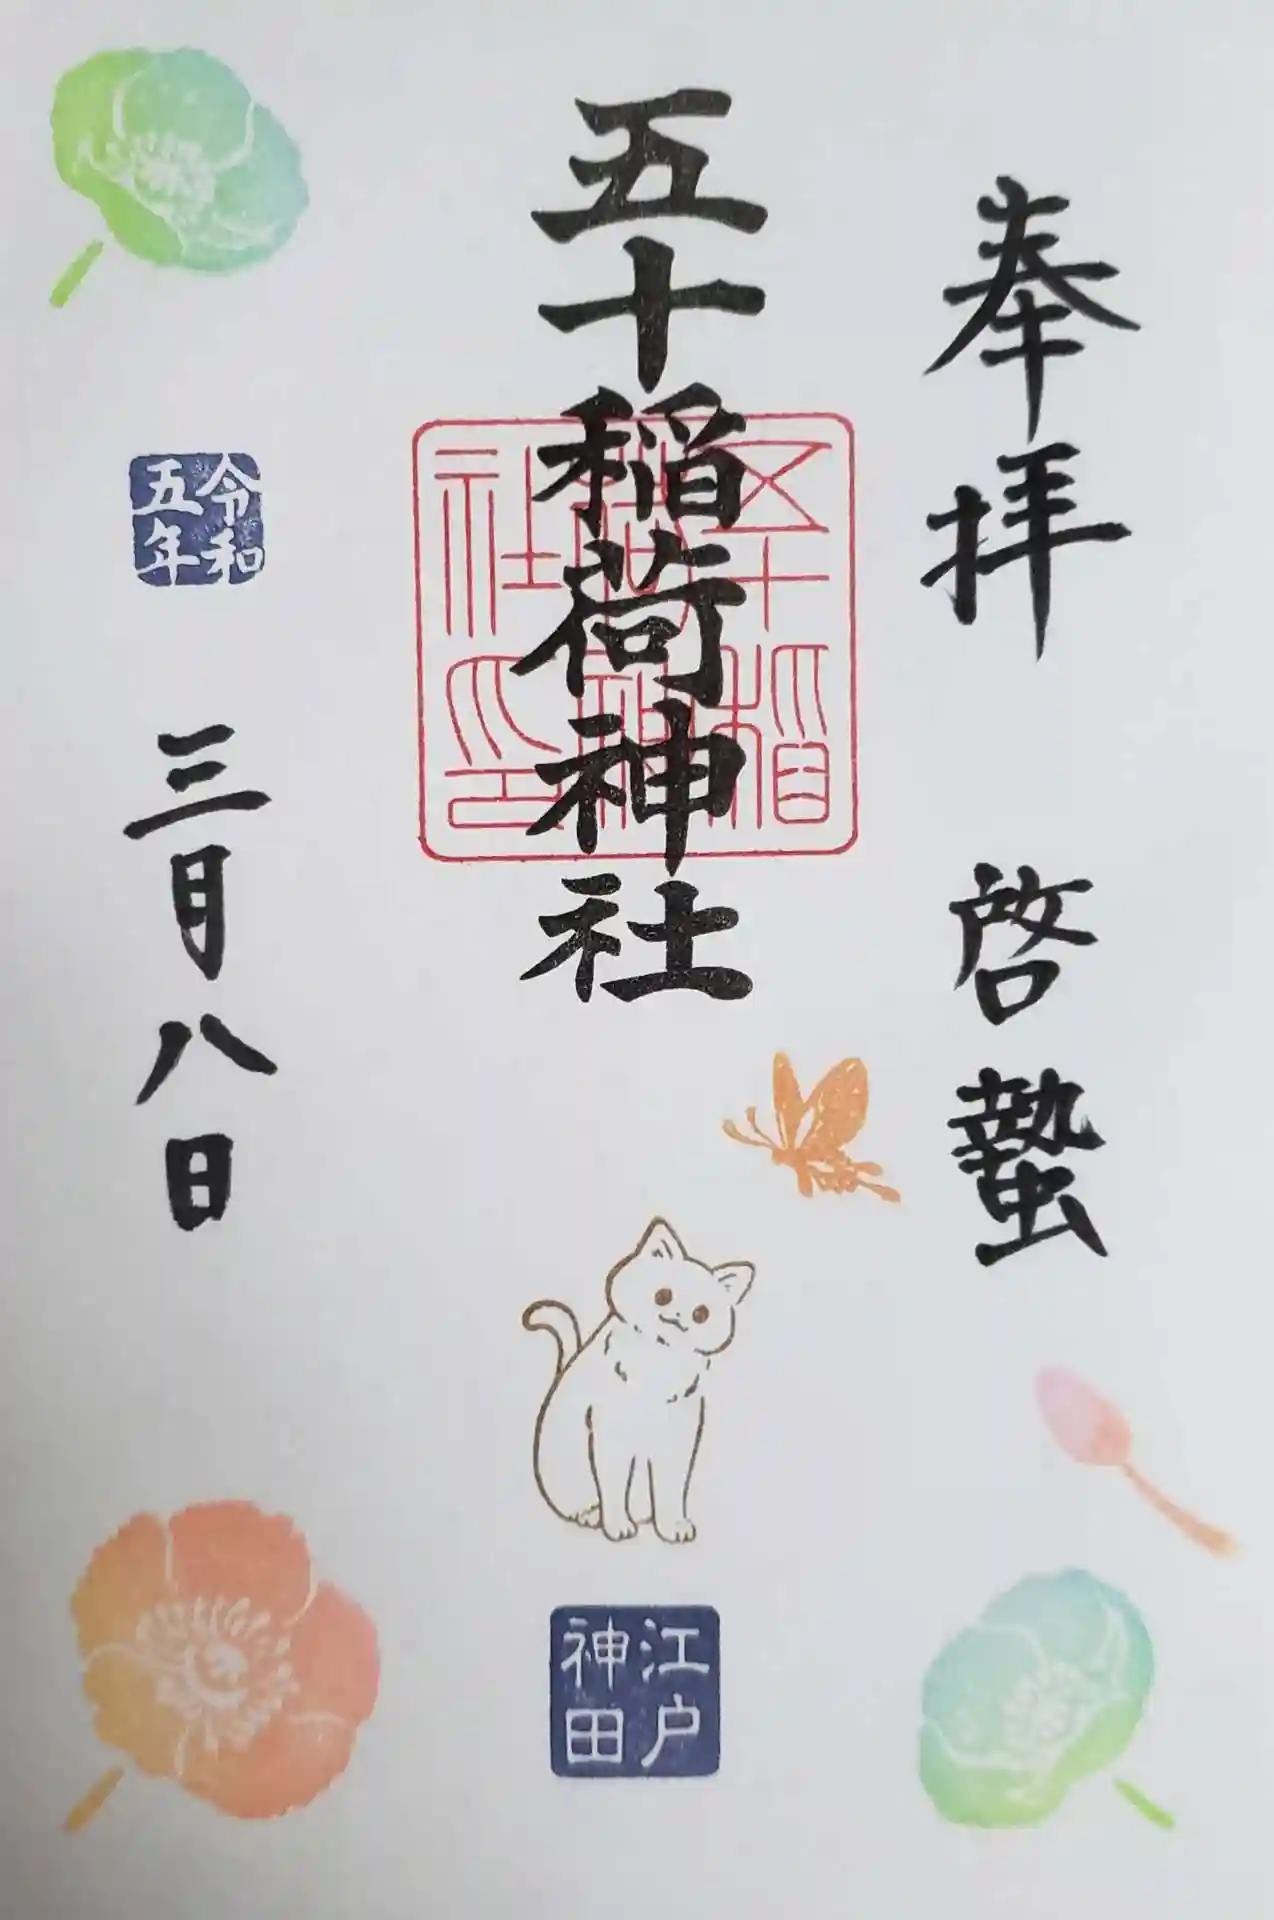 奉拝 啓蟄
五十稲荷神社
五十稲荷神社印
令和五年
三月八日
江戸神田